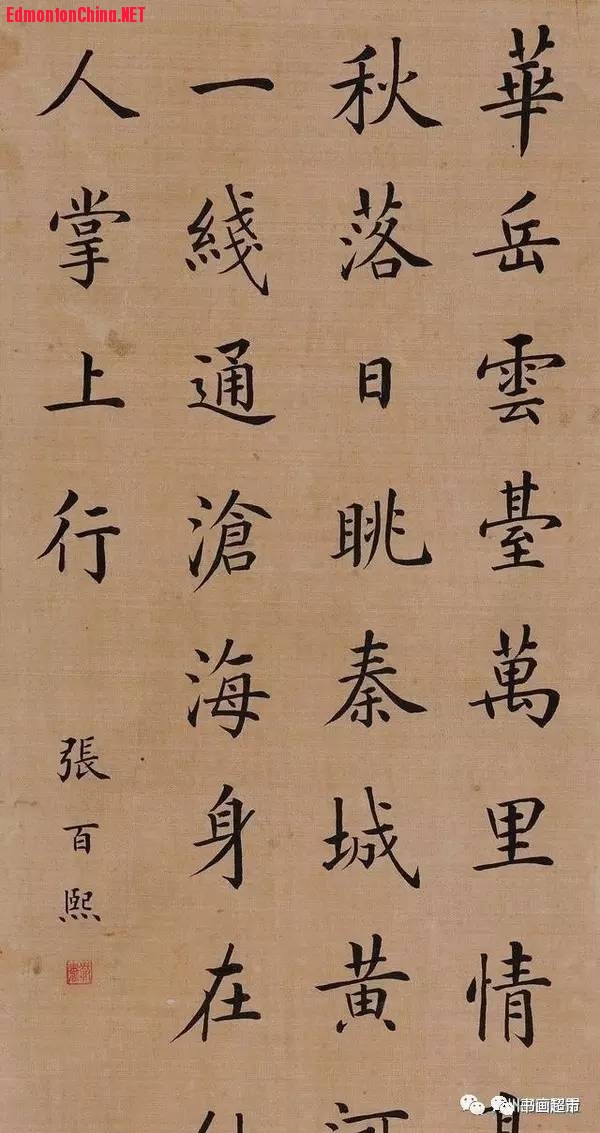 EdmontonChina.NET
華岳雲臺萬里情
秋落日眺秦城黄河
一綫通滄海身在
人掌上行
張百熙
书画超市